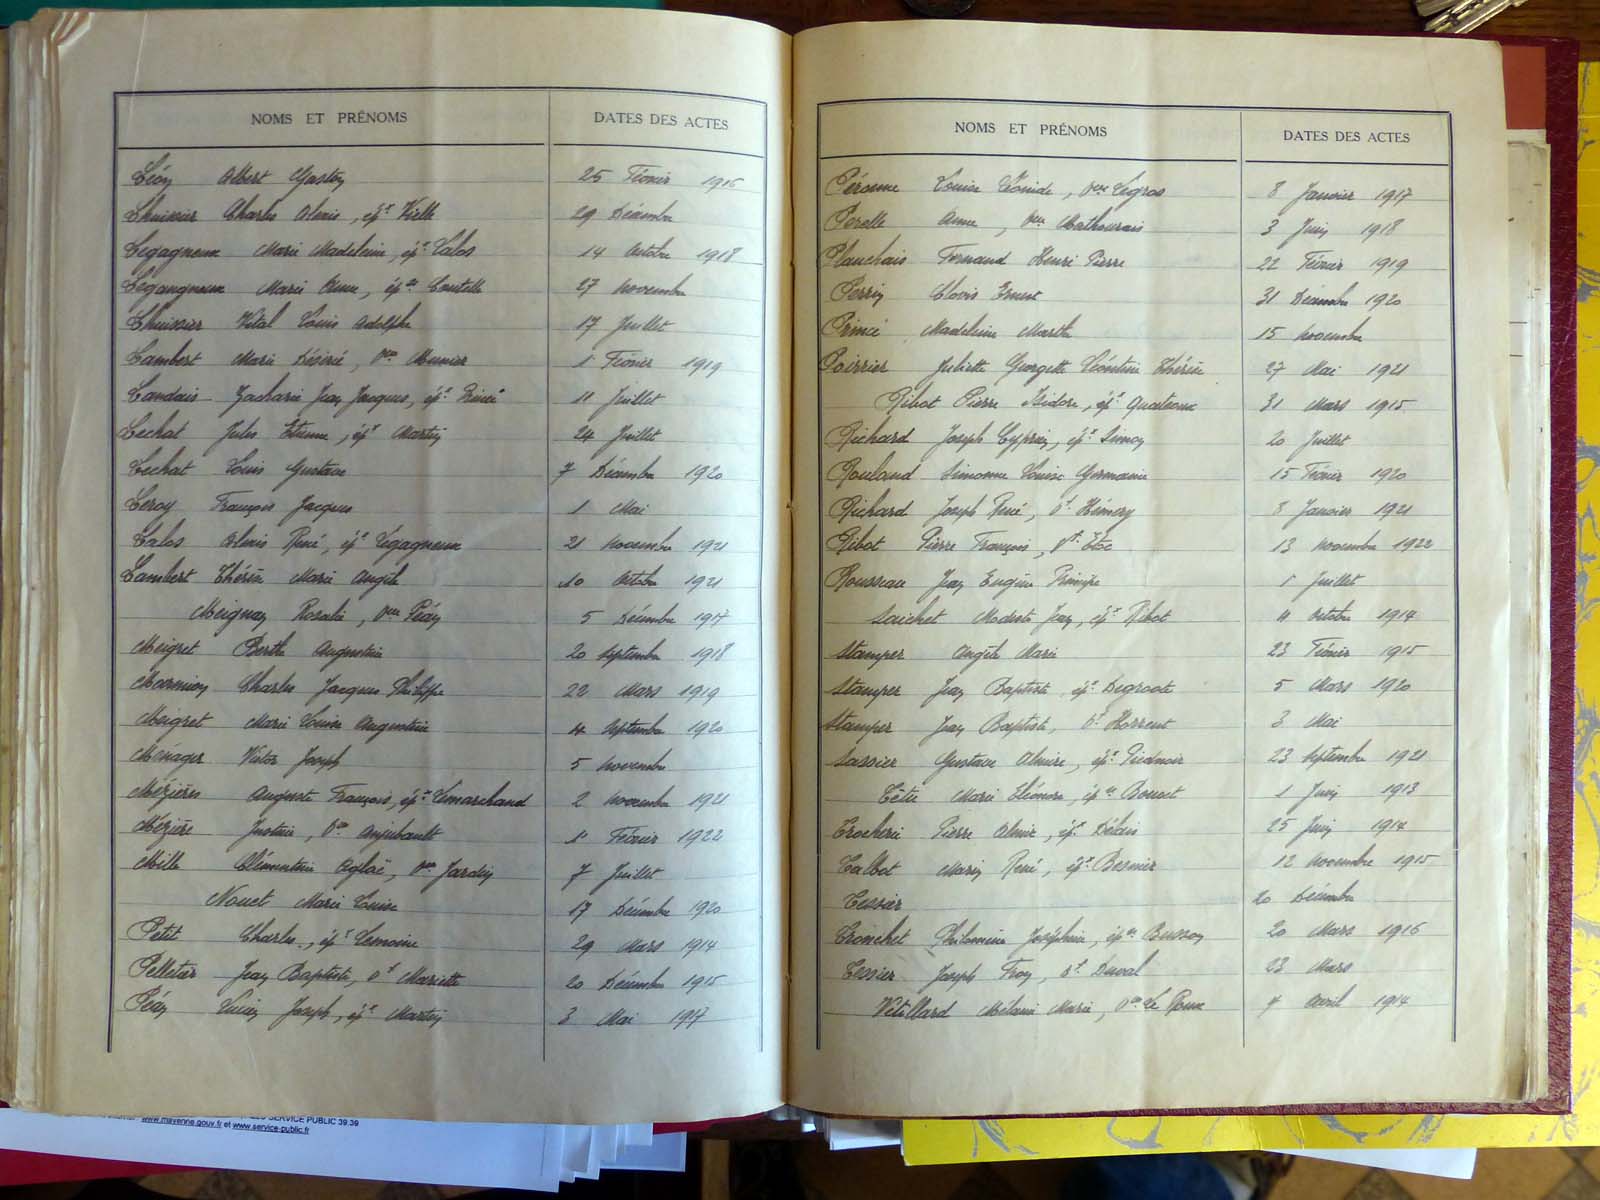 NOMS ET PRÉNOMS DATES DES ACTES
Léon Albert Gaston 25 Février 1916
Lhuissier Charles Alexis, ép.x Vielle 29 Décembre
Legagneux Marie Madeleine, ép.se Lalos 14 Octobre 1918
Legangneux Marie Anne, ép.se Coutelle 27 Novembre
Lhuissier Vital Louis Adolphe 17 Juillet
Lambert Marie Désirée, Vve Meunier 1 Février 1919
Landais Zacharie Jean Jacques, ép.x Princé 11 Juillet
Lechat Jules Etienne, ép.x Martin 24 Juillet
Lechat Louis Gustave 7 Décembre 1920
Leroy François Jacques 1 Mai
Lalos Alexis René, ép.x Legagneux 21 Novembre 1921
Lambert Thérèse Marie Angèle 10 Octobre 1921
Meignan Rosalie, Vve Péan 5 Décembre 1917
Meigret Berthe Augustine 20 Septembre 1918
Marmion Charles Jacques Philippe 22 Mars 1919
Meigret Marie Louise Augustine 4 Septembre 1920
Ménager Victor Joseph 5 Novembre
Mézières Auguste François, ép.x Lemarchand 2 Novembre 1921
Mézière Justine, Vve Anjubault 1 Février 1922
Mille Clémentine Aglaé, Vve Jardin 7 Juillet
Nouet Marie Louise 17 Décembre 1920
Petit Charles, ép.x Lemoine 29 Mars 1914
Pelletier Jean Baptiste, Vf Mariette 20 Décembre 1915
Péan Lucien Joseph, ép.x Martin 3 Mai 1917
NOMS ET PRÉNOMS DATES DES ACTES
Péronne Louise Léonide, Vve Legros 8 Janvier 1917
Perelle Anne, Vve Mathourais 3 Juin 1918
Planchais Fernand Henri Pierre 22 Février 1919
Perrin Clovis Ernest 31 Décembre 1920
Princé Madeleine Marthe 15 Novembre
Poirrier Juliette Georgette Léontine Thérèse 27 Mai 1921
Ribot Pierre Isidore, ép.x Quateaux 31 Mars 1915
Richard Joseph Cyprien, ép.x Simon 20 Juillet
Rouland Simonne Louise Germaine 15 Février 1920
Richard Joseph René, Vf Hémery 8 Janvier 1921
Ribot Pierre François, Vf Etoc 13 Novembre 1922
Rousseau Jean Eugène 1 Juillet
Saichet Modeste Jean, ép.x Ribot 4 Octobre 1914
Stamper Angèle Marie 23 Février 1915
Stamper Jean Baptiste, ép.x Degroote 5 Mars 1920
Stamper Jean Baptiste, Vf Horrent 3 Mai
Sassier Gustave Almire, ép.x Piednoir 23 Septembre 1921
Têtu Marie Eléonore, ép.se Bouvet 1 Juin 1913
Trocherie Pierre Almir, ép.x Délais 25 Juin 1914
Talbot Marin René, ép.x Besnier 12 Novembre 1915
Tessier 20 Décembre
Tronchet Philomène Joséphine, ép.se Busson 20 Mars 1916
Tessier Joseph Frny, Vf Duval 23 Mars
Vétillard Mélanie Marie, Vve Le Roux 4 Avril 1914
SERVICE PUBLIC 39 39
www.mayenne.gouv.fr et www.service-public.fr